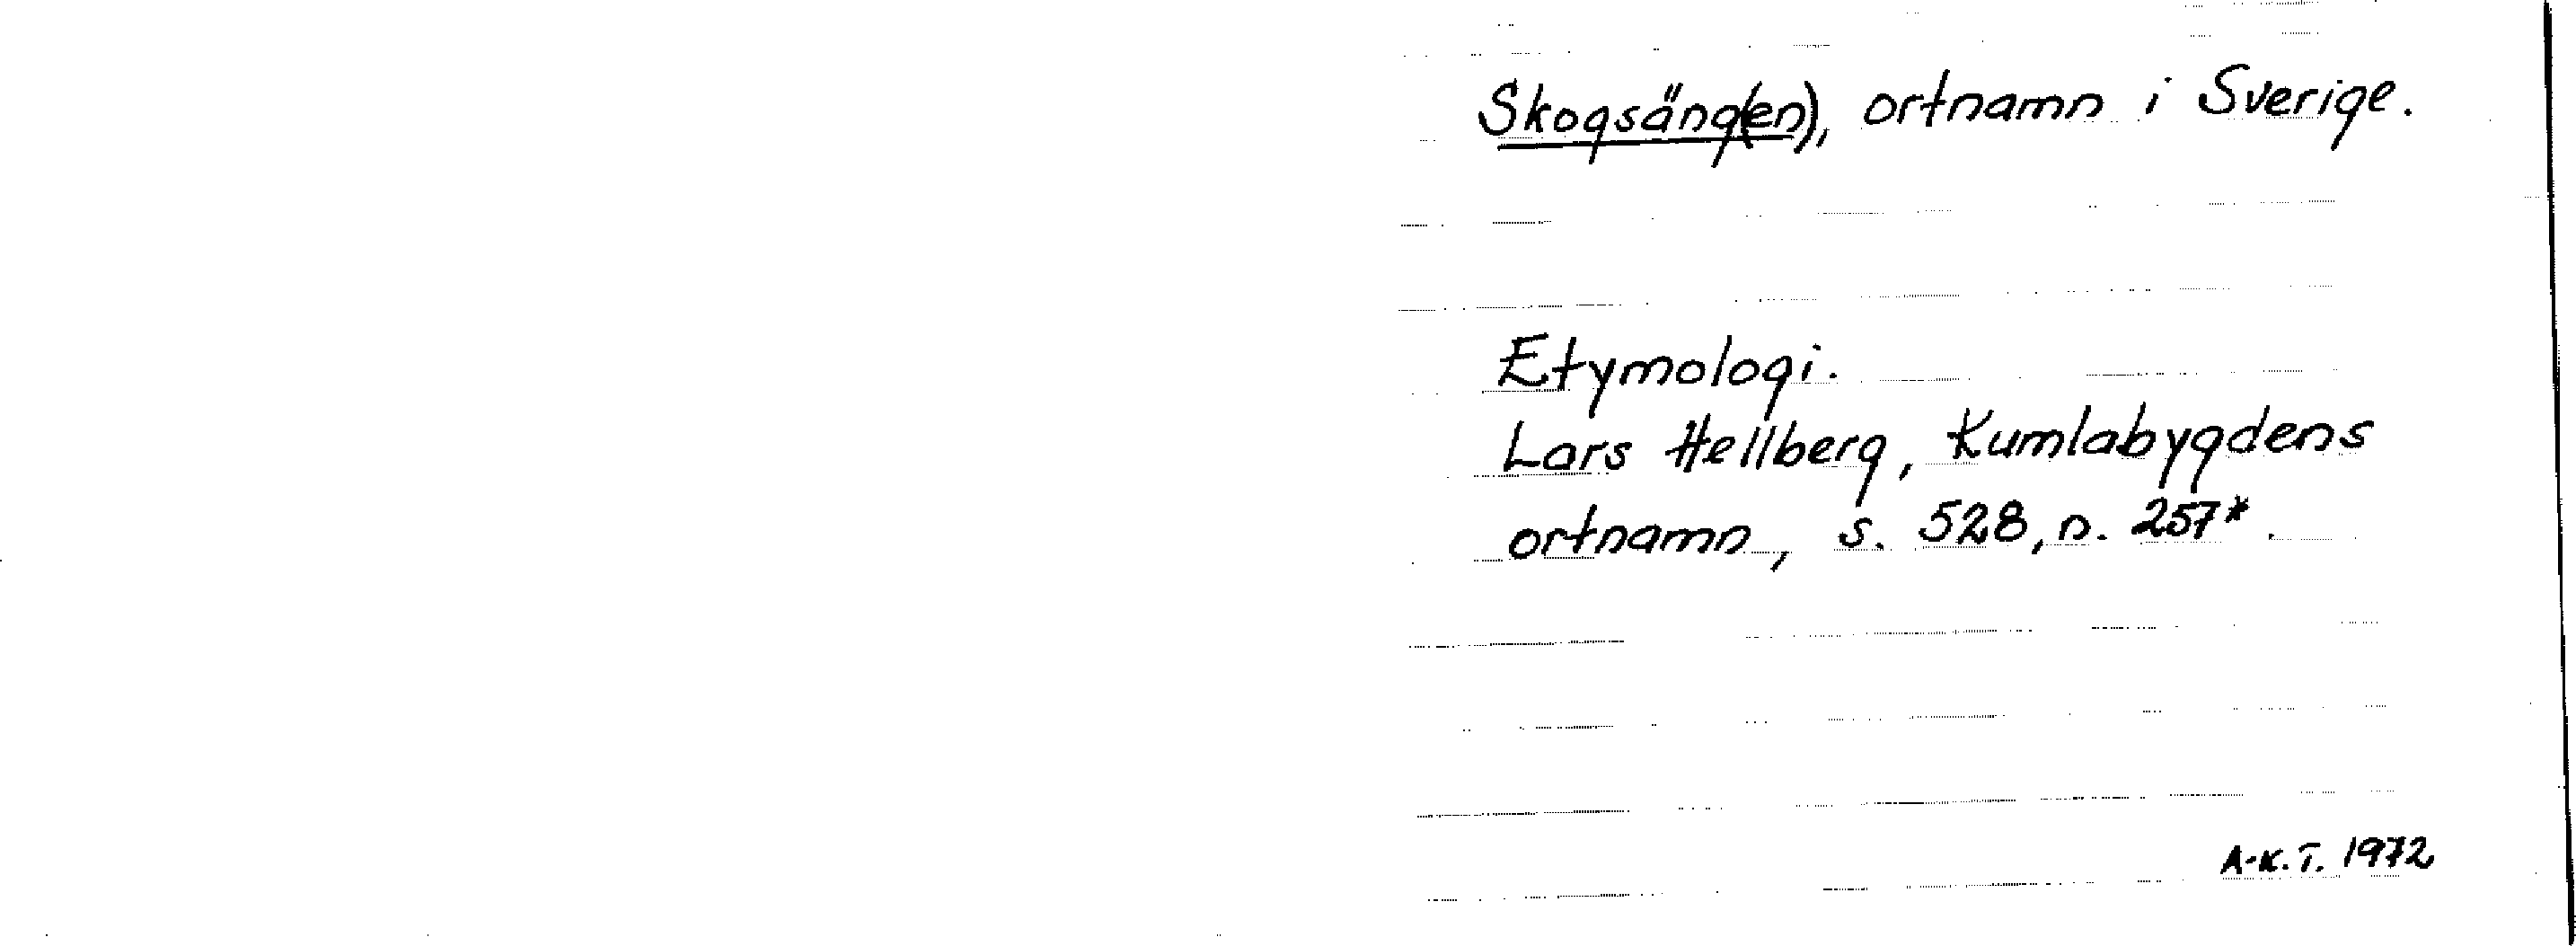 Skogsäng(en), ortnamn i Sverige.
Etymologi.
Lars Hellberg, Kumlabygdens
ortnamn, s. 528, n. 257*.
A-K.T. 1972